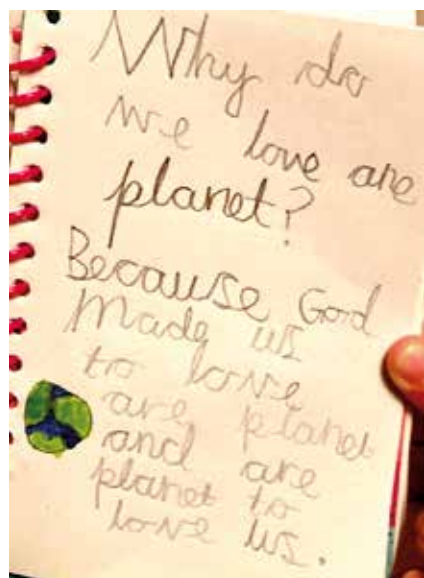 Why do
we love are
planet?
Because God
Made us
to love
are planet
and are
planet to
love us.